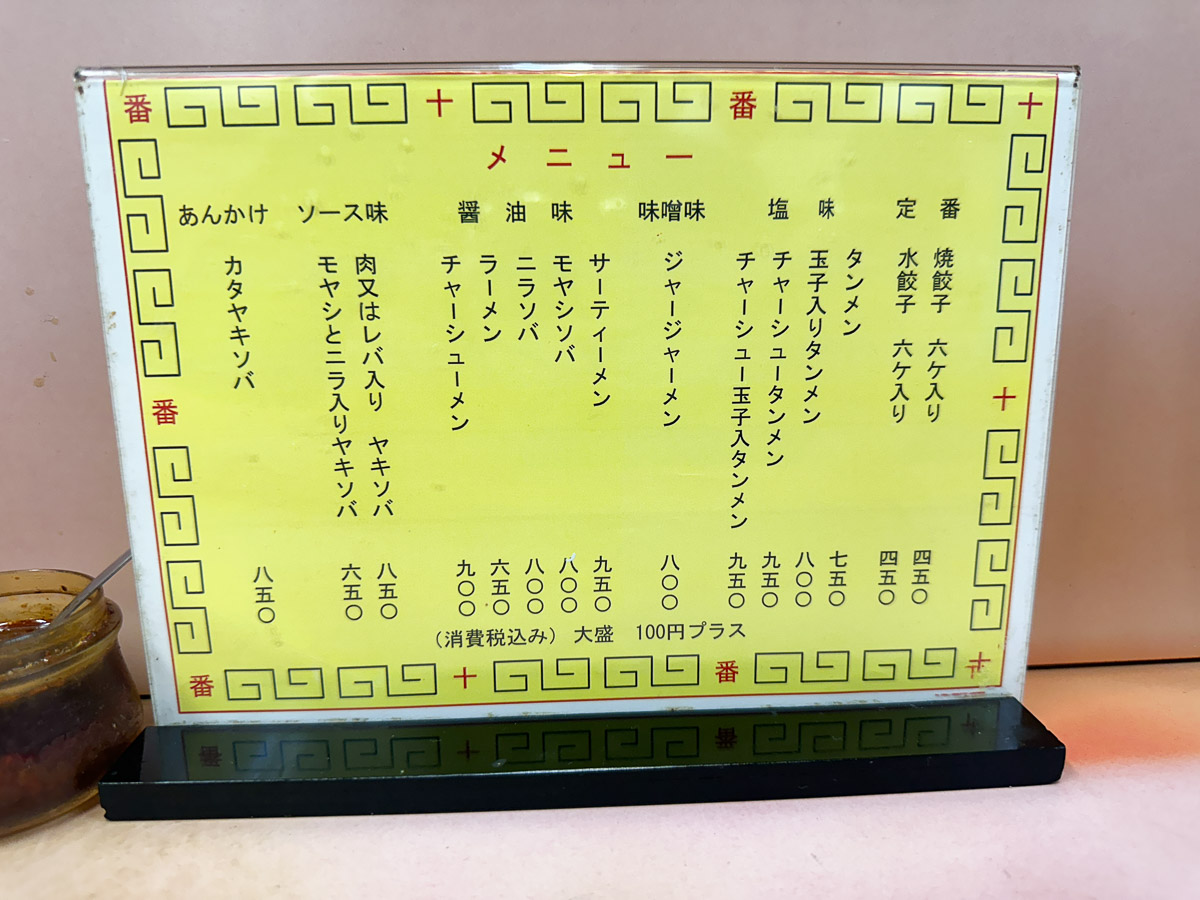 番 十 番 十
メニュー
定番
焼餃子 六ケ入り 四五〇
水餃子 六ケ入り 四五〇
塩味
タンメン 七五〇
玉子入りタンメン 八〇〇
チャーシュータンメン 九五〇
チャーシュー玉子入タンメン 九五〇
味噌味
ジャージャーメン 八〇〇
醤油味
サーティーメン 九五〇
モヤシソバ 八〇〇
ニラソバ 八〇〇
ラーメン 六五〇
チャーシューメン 九〇〇
ソース味
肉又はレバ入り ヤキソバ 八五〇
モヤシとニラ入りヤキソバ 六五〇
あんかけ
カタヤキソバ 八五〇
(消費税込み) 大盛 100円プラス
番 十
番 十 番 十